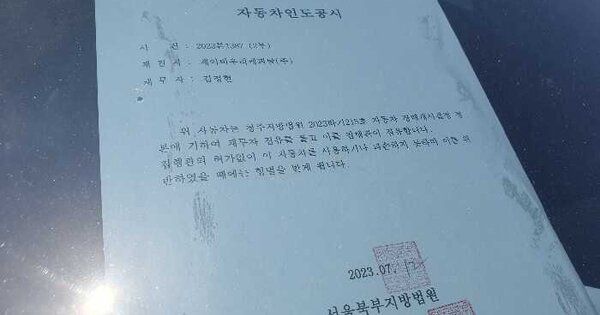 자동차인도공시
사 건 : 2023본1387 (2부)
채 권 자 : 제이비우리캐피탈(주)
채 무 자 : 김정현
위 사동차는 청주지방법원 자동차 경매개시결정 정
본에 기하여 채무자 점유를 풀고 이를 집행관이 점유합니다.
집행관의 허가없이 이 자동차를 사용하거나 파손하지 못하며 이를 위
반하였을 때에는 형벌을 받게 됩니다.
2023.07.
서울북부지방법원